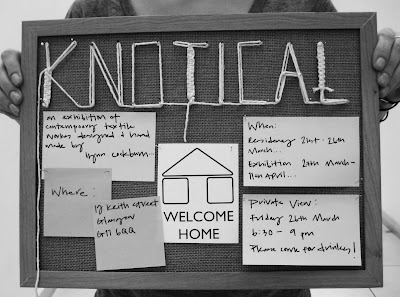 KNOTICAL
an exhibition of
contemporary textile
works designed & hand
made by
Where:
18 Keith Street
Glasgow
G11 6QQ
WELCOME
HOME
When:
Residency 21st - 26th
March...
Exhibition 26th March -
11th April...
Private View:
Friday 26th March
6:30 - 9 pm
Please come for drinkies!